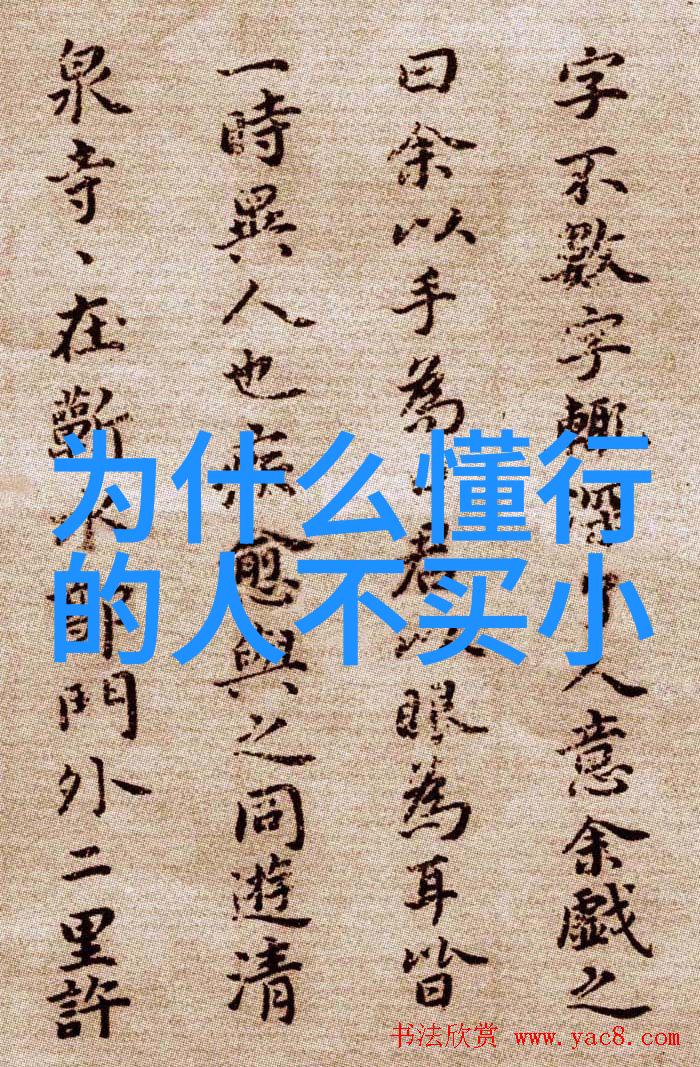 字不數字輒深了人意余戲之
曰余以手為君以眼為耳皆
一時異人也疾愈與之同遊清
泉寺、在蘄水郭門外二里許
为什么懂行
的人不买小
书法欣赏 www.yac8.com